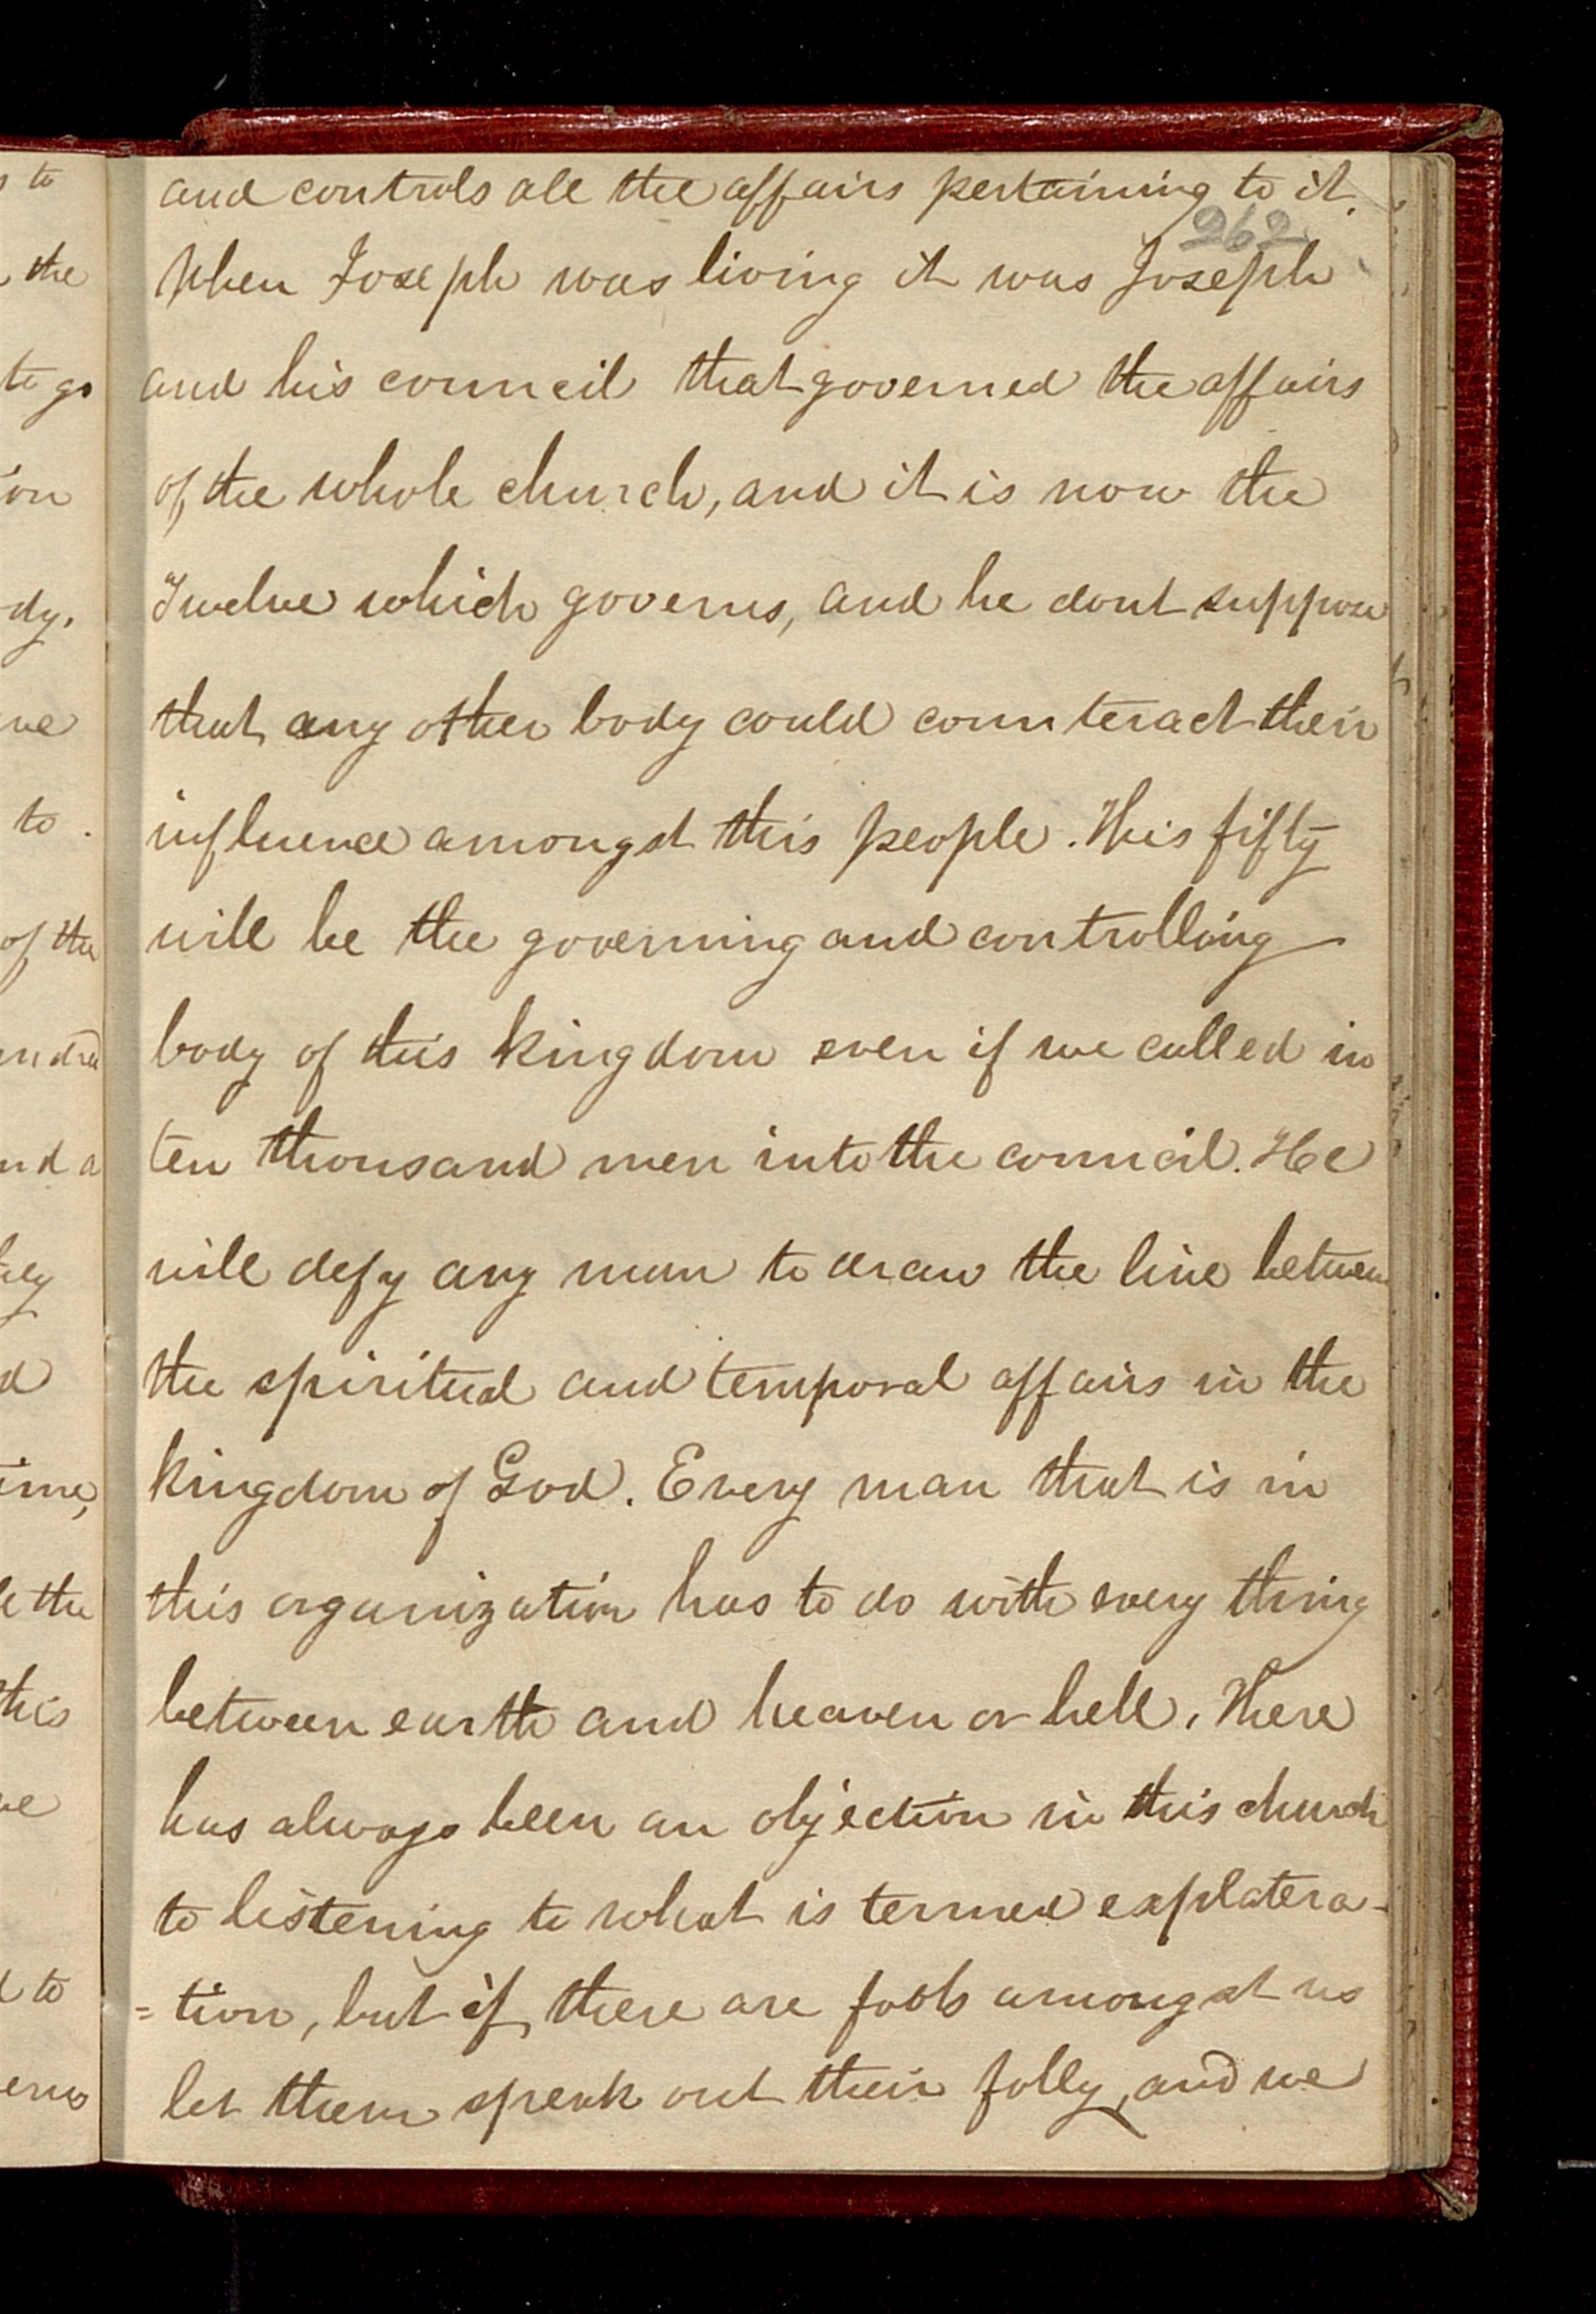 and controls all the affairs pertaining to it.
262
When Joseph was living it was Joseph
and his council that governed the affairs
of the whole church, and it is now the
Twelve which governs, and he dont suppose
that any other body could counteract their
influence amongst this people. This fifty
will be the governing and controlling
body of this kingdom even if we called in
ten thousand men into the council. He
will defy any man to draw the line between
the spiritual and temporal affairs in the
kingdom of God. Every man that is in
this organization has to do with every thing
between earth and heaven or hell. There
has always been an objection in this church
to listening to what is termed explatera-
=tion, but if there are fools amongst us
let them speak out their folly, and we
to
the
to go
ion
dy.
ve
to.
of the
nd a
d
ime,
the
this
ve
to